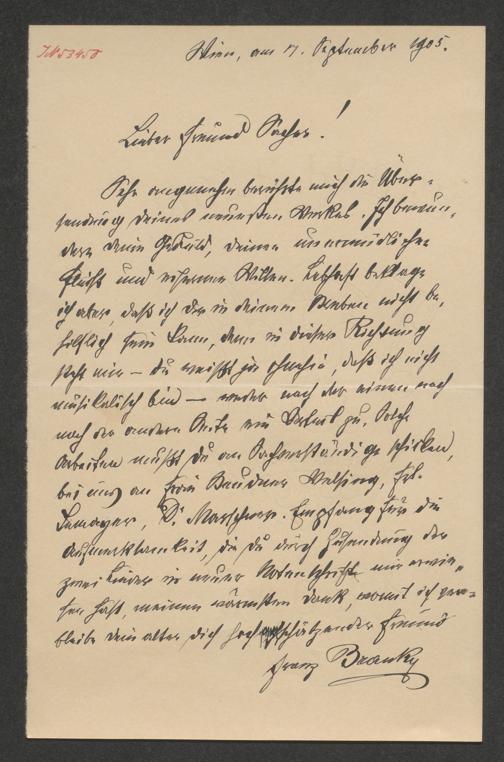 IN 53450
Wien, am 17. September 1905.
Lieber Freund Sacher!
Sehr angenehm berührte mich die Über-
sendung deines neuesten Werkes. Ich bewun-
dere deine Geduld, deinen unermüdlichen
Fleiß und eisernen Willen. Lebhaft beklage
ich aber, daß ich dir in deinem Streben nicht be-
hilflich sein kann, denn in dieser Richtung
steht mir – du weißt ja ohnehin, daß ich nicht
musikalisch bin – weder nach der einen noch
nach der anderen Seite ein Urteil zu. Solche
Arbeiten mußt du an Sachverständige schicken,
bei uns an Frau Frl.
Dr. Marschner. Empfang für die
Aufmerksamkeit, die du durch Zusendung der
zwei Lieder in neuer Notenschrift mir erwie-
sen hast, meinen wärmsten Dank, womit ich ver-
bleibe dein alter dich hochschätzender Freund
Franz Branky